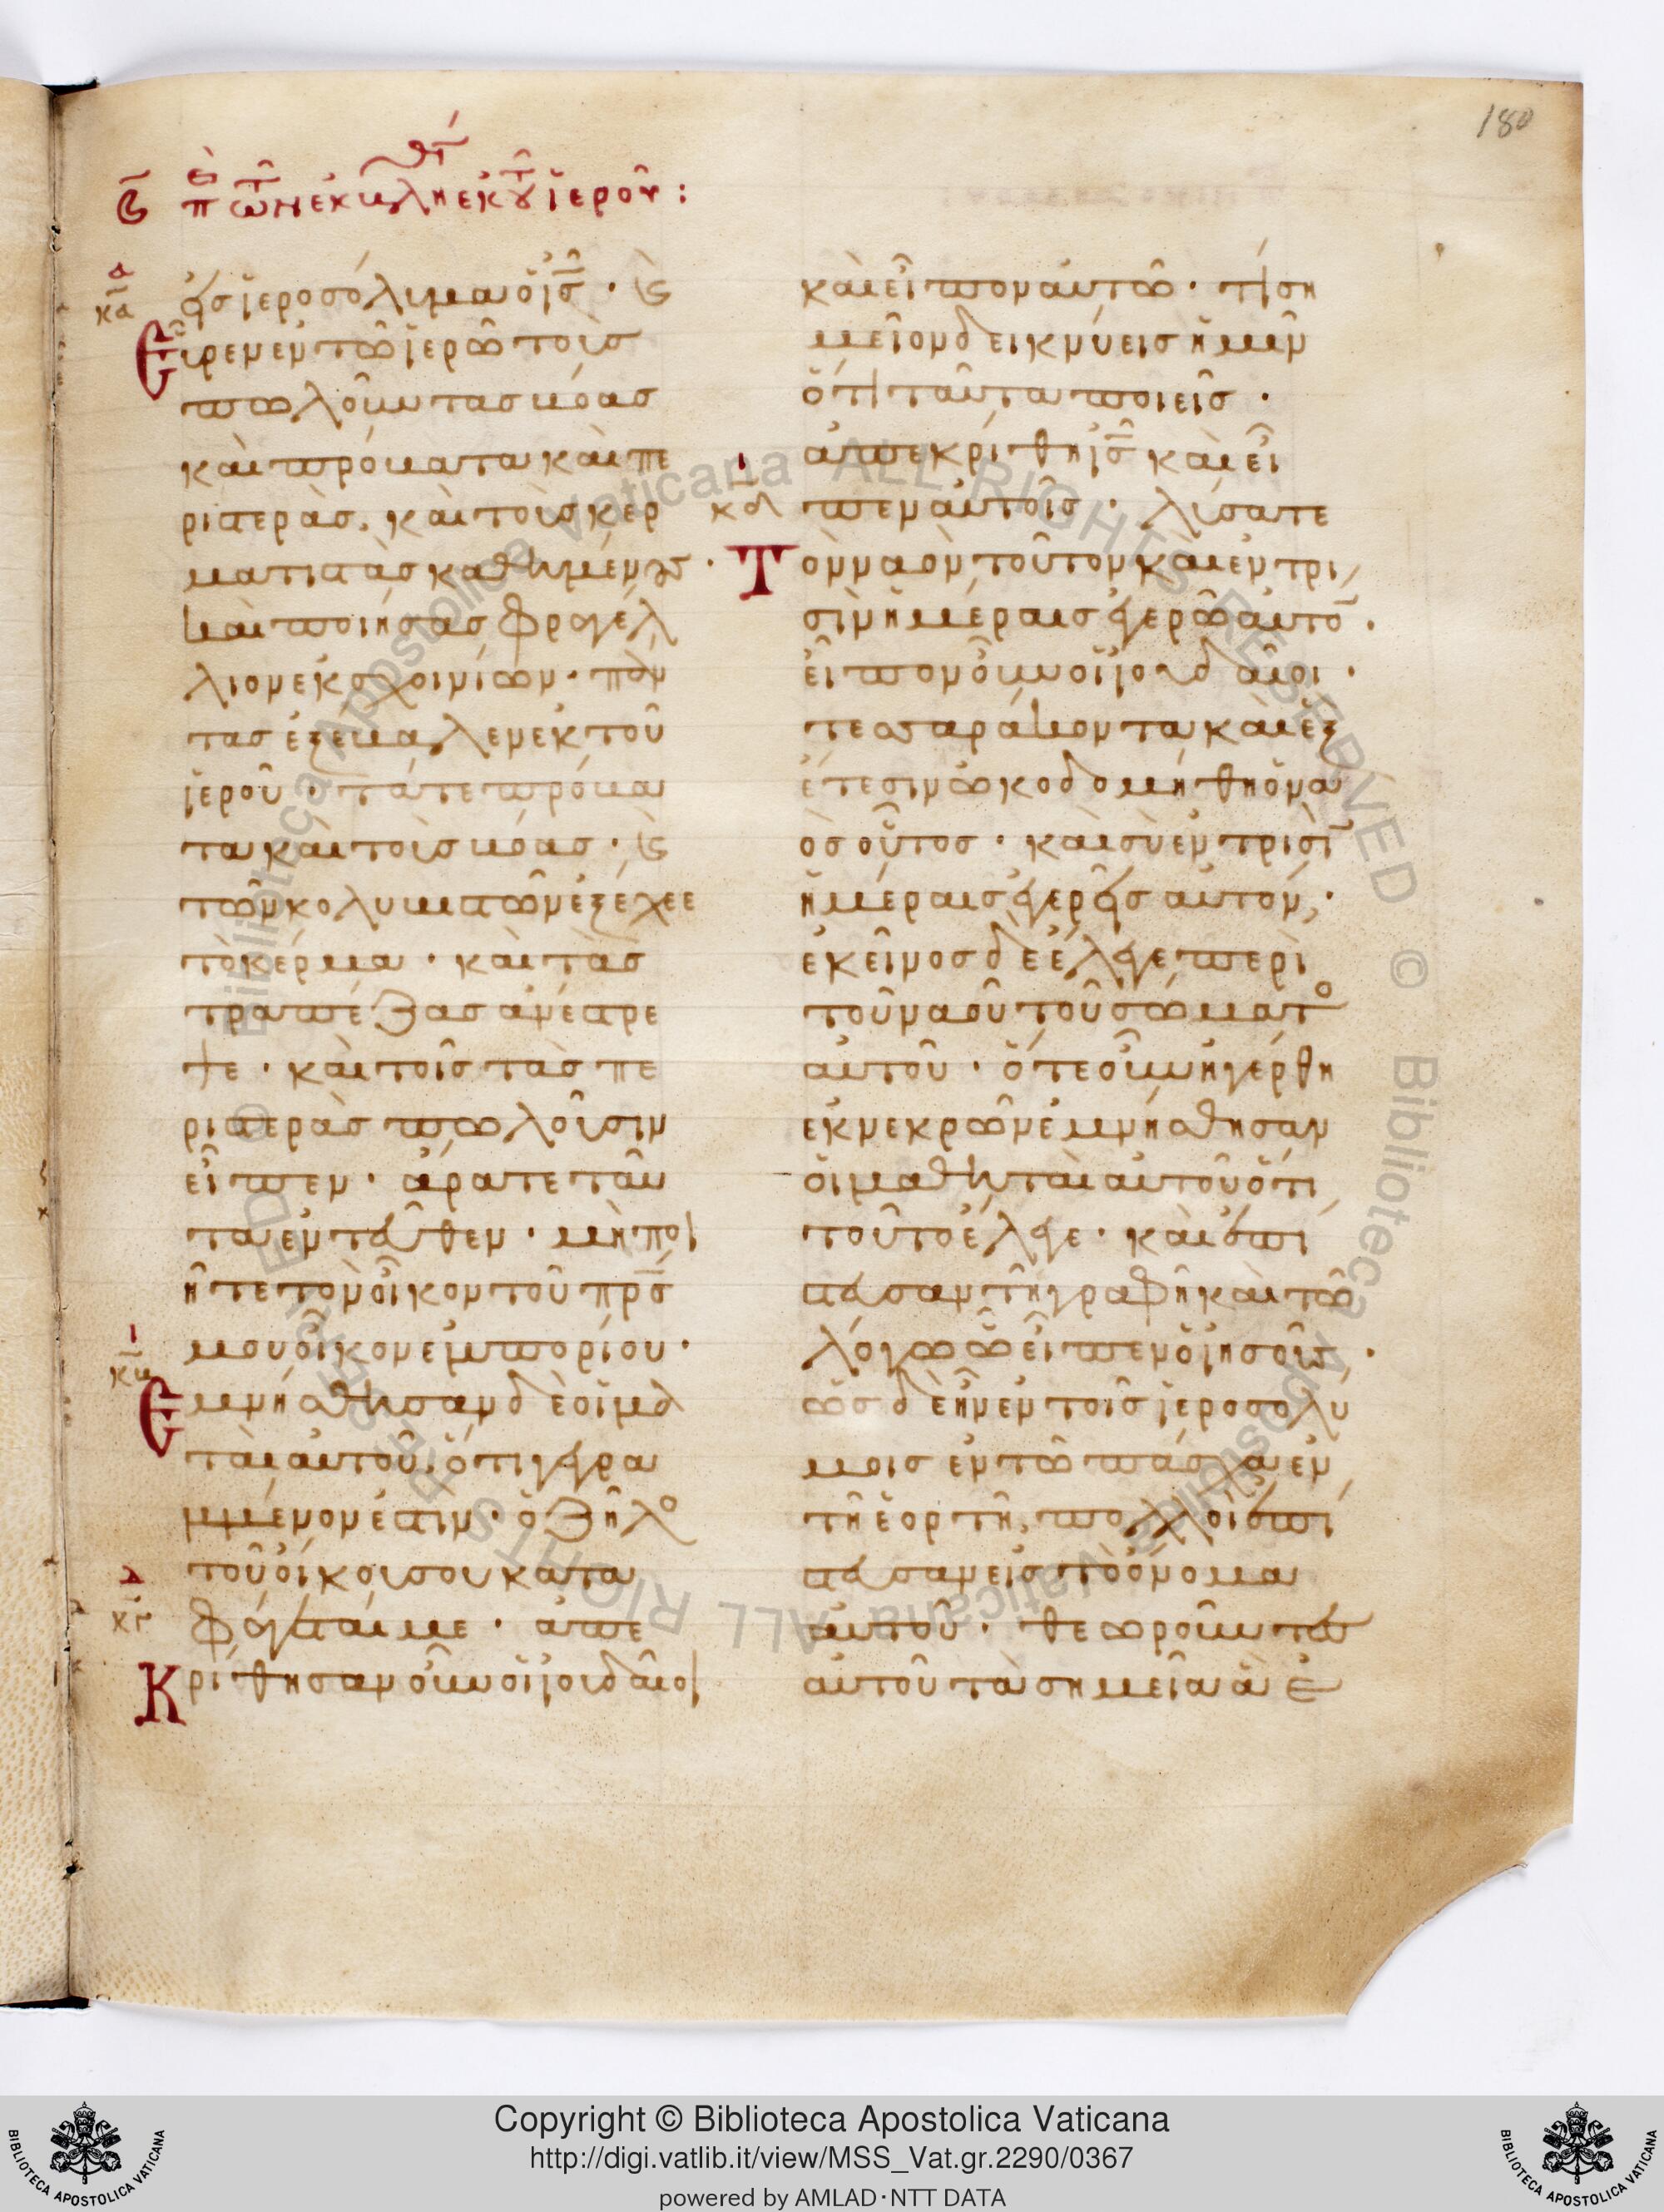 180
β περὶ τῶν ἐκβληθέντ ἐκ τοῦ ἱεροῦ:
εἰς ἱεροσόλυμα ὁ ις̄ · καὶ
κα
εὗρεν ἐν τῶ ἱερῶ τοὺς
πωλοῦντας βόας
καὶ πρόβατα καὶ πε
ριστεράς. καὶ τοὺς κερ
ματιστὰς καθημένους ·
καὶ ποιήσας φραγέλ
λιον ἐκ σχοινίων · πάν
τας ἐξέβαλεν ἐκ τοῦ
ἱεροῦ · τά τε πρόβα
τα καὶ τοὺς βόας · καὶ
τῶν κολυβιστῶν ἐξέχεε
τὸ κέρμα · καὶ τὰς
τραπέζας ἀνέστρε
ψε · καὶ τοῖς τὰς πε
ριστερὰς πωλοῦσιν
εἶπεν · ἄρατε ταῦ
τα ἐντεῦθεν · μὴ ποι
ῆτε τὸν οἶκον τοῦ πρς̄
μου οἶκον ἐμπορίου ·
κβ
ἐμνήσθησαν δὲ οἱ μαθ
ταὶ αὐτοῦ, ὅτι γεγρα
μμένον ἐστιν · ὁ ζῆλο
τοῦ οἴκου σου κατα
κγ
φάγεταί με · ἀπε
κρίθησαν οὖν οἱ ἰουδαῖοι
καὶ εἶπον αὐτῶ · τί ση
μεῖον δεικνύεις ἡμῖν
ὅτι ταῦτα ποιεῖς ·
ἀπεκρίθη ις̄ καὶ εἶ
κδ
πεν αὐτοῖς · λύσατε
τὸν ναὸν τοῦτον καὶ ἐν τρι
σὶν ἡμέραις ἐγερῶ αὐτό ·
εἶπον οὖν οἱ ἰουδαῖοι ·
τεσσαράκοντα καὶ ἓξ
ἔτεσιν ὠκοδομήθη ὁ να
ὸς οὗτος · καὶ σὺ ἐν τρισὶ
ἡμέραις ἐγερεῖς αὐτόν ·
ἐκεῖνος δὲ ἔλεγε περὶ
τοῦ ναοῦ τοῦ σώματο
αὐτοῦ · ὅτε οὖν ἠγέρθη
ἐκ νεκρῶν ἐμνήσθησαν
οἱ μαθηταὶ αὐτοῦ ὅτι
τοῦτο ἔλεγε · καὶ ἐπί
στευσαν τῆ γραφῆ καὶ τῶ
λόγω ὧ εἶπεν ὁ ἰησοῦς ·
ὡς δὲ ἦν ἐν τοῖς ἱεροσολύ
μοις ἐν τῶ πάσχα ἐν
τῆ ἑορτῆ, πολλοὶ ἐπί
στευσαν εἰς τὸ ὄνομα
αὐτοῦ · θεωροῦντες
αὐτοῦ τὰ σημεῖα ἃ ἐ
© Biblioteca Apostolica Vaticana ALL RIGHTS RESERVED © Biblioteca Apostolica Vaticana ALL RIGHTS RESERVED
BIBLIOTECA APOSTOLICA VATICANA
Copyright © Biblioteca Apostolica Vaticana
http://digi.vatlib.it/view/MSS_Vat.gr.2290/0367
powered by AMLAD·NTT DATA
BIBLIOTECA APOSTOLICA VATICANA